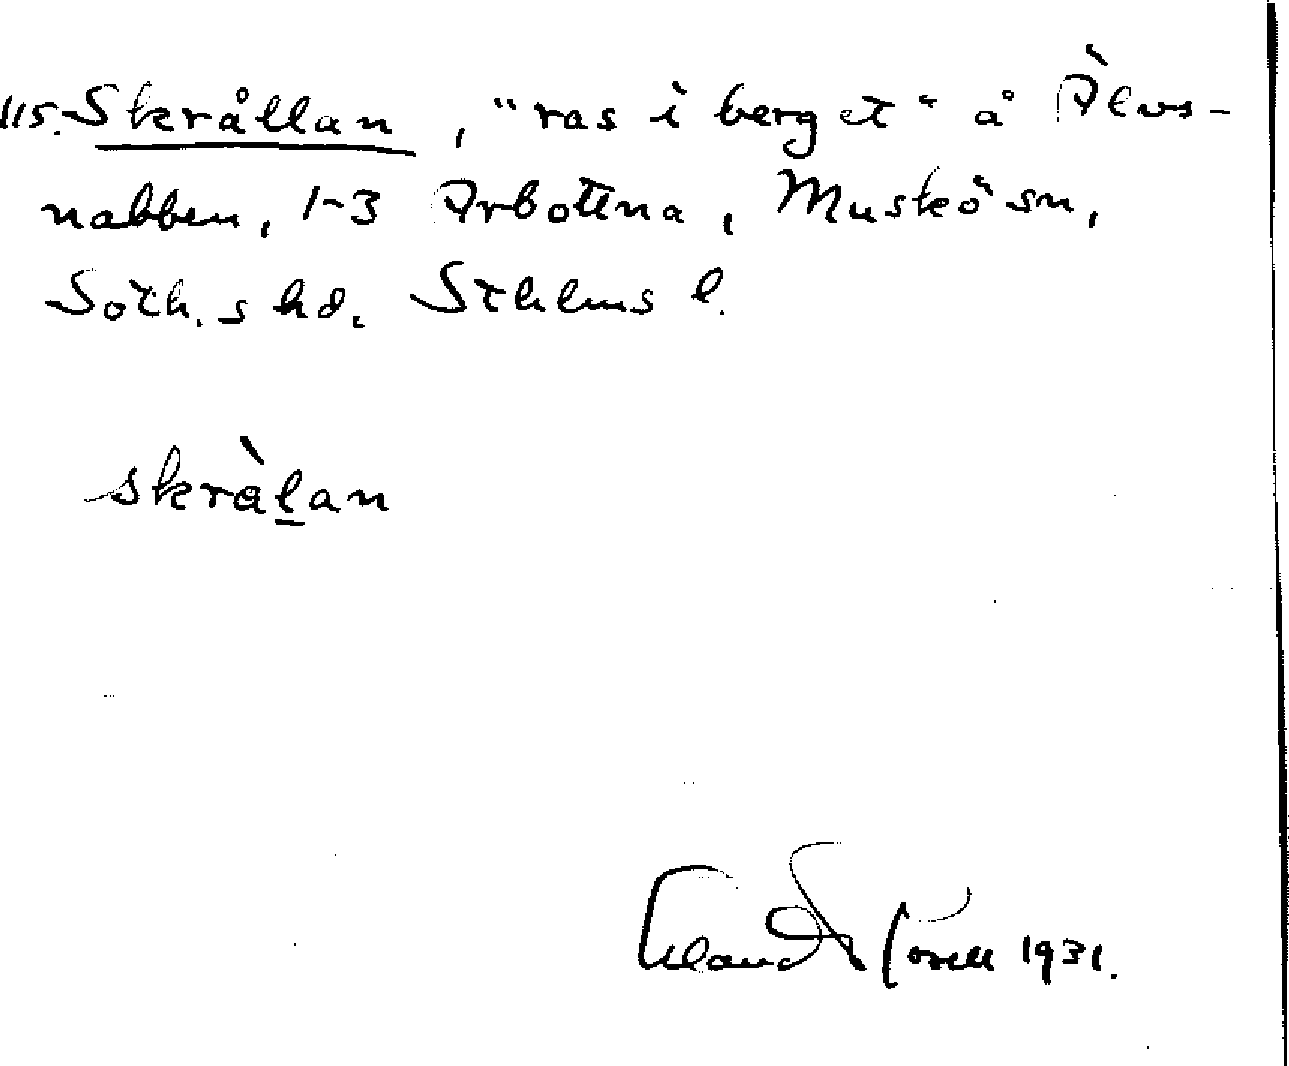 115. Skrållan, "ras i berget" å Àlvs-
nabben, 1-3 Arbottna, Muskö sn,
Soth.s hd. Sthlms l.
skràlan
1931.